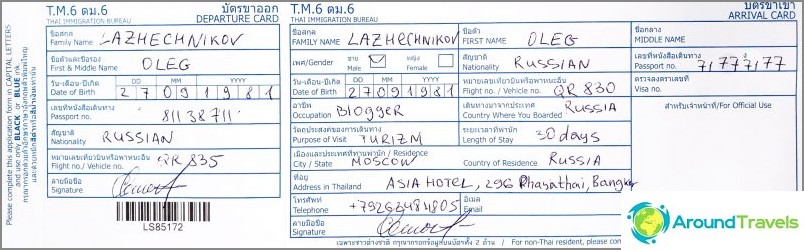 T.M.6 ตม.6 บัตรขาออก
THAI IMMIGRATION BUREAU DEPARTURE CARD
ชื่อสกุล
Family Name LAZHECHNIKOV
ชื่อตัวและชื่อรอง
First & Middle Name OLEG
วัน-เดือน-ปีเกิด DD MM YYYY
Date of Birth 27 09 1981
เลขที่หนังสือเดินทาง
Passport no. 811387111
สัญชาติ
Nationality RUSSIAN
หมายเลขเที่ยวบินหรือพาหนะอื่น
Flight no./ Vehicle no. QR 835
ลายมือชื่อ
Signature
LS85172
Please complete this application form in CAPITAL LETTERS
and use only BLACK or BLUE ink.
T.M.6 ตม.6 บัตรขาเข้า
THAI IMMIGRATION BUREAU ARRIVAL CARD
ชื่อสกุล ชื่อตัว ชื่อกลาง
FAMILY NAME LAZHECHNIKOV FIRST NAME OLEG MIDDLE NAME
เพศ/Gender ชาย Male หญิง Female
สัญชาติ
Nationality RUSSIAN
เลขที่หนังสือเดินทาง
Passport no. 71777177
วัน-เดือน-ปีเกิด DD MM YYYY
Date of Birth 27 09 1981
หมายเลขเที่ยวบินหรือพาหนะอื่น
Flight no./ Vehicle no. QR 830
ตรวจลงตราเลขที่
Visa no.
อาชีพ
Occupation BloggeR
เดินทางมาจากประเทศ
Country Where You Boarded RUSSIA
สำหรับเจ้าหน้าที่/For Official Use
วัตถุประสงค์การเดินทาง
Purpose of Visit TURIZM
ระยะเวลาที่พำนัก
Length of Stay 30 days
เมืองและประเทศที่ท่านพำนัก / Residence
City / State MOSCOW Country of Residence RUSSIA
ที่อยู่
Address in Thailand ASIA HOTEL, 296 Phayathai, Bangkok
โทรศัพท์ อีเมล
Telephone +79263484805 Email
ลายมือชื่อ
Signature
เฉพาะชาวต่างชาติ กรุณากรอกข้อมูลบนบัตรทั้ง 2 ด้าน / For non-Thai resident, please
AroundTravels